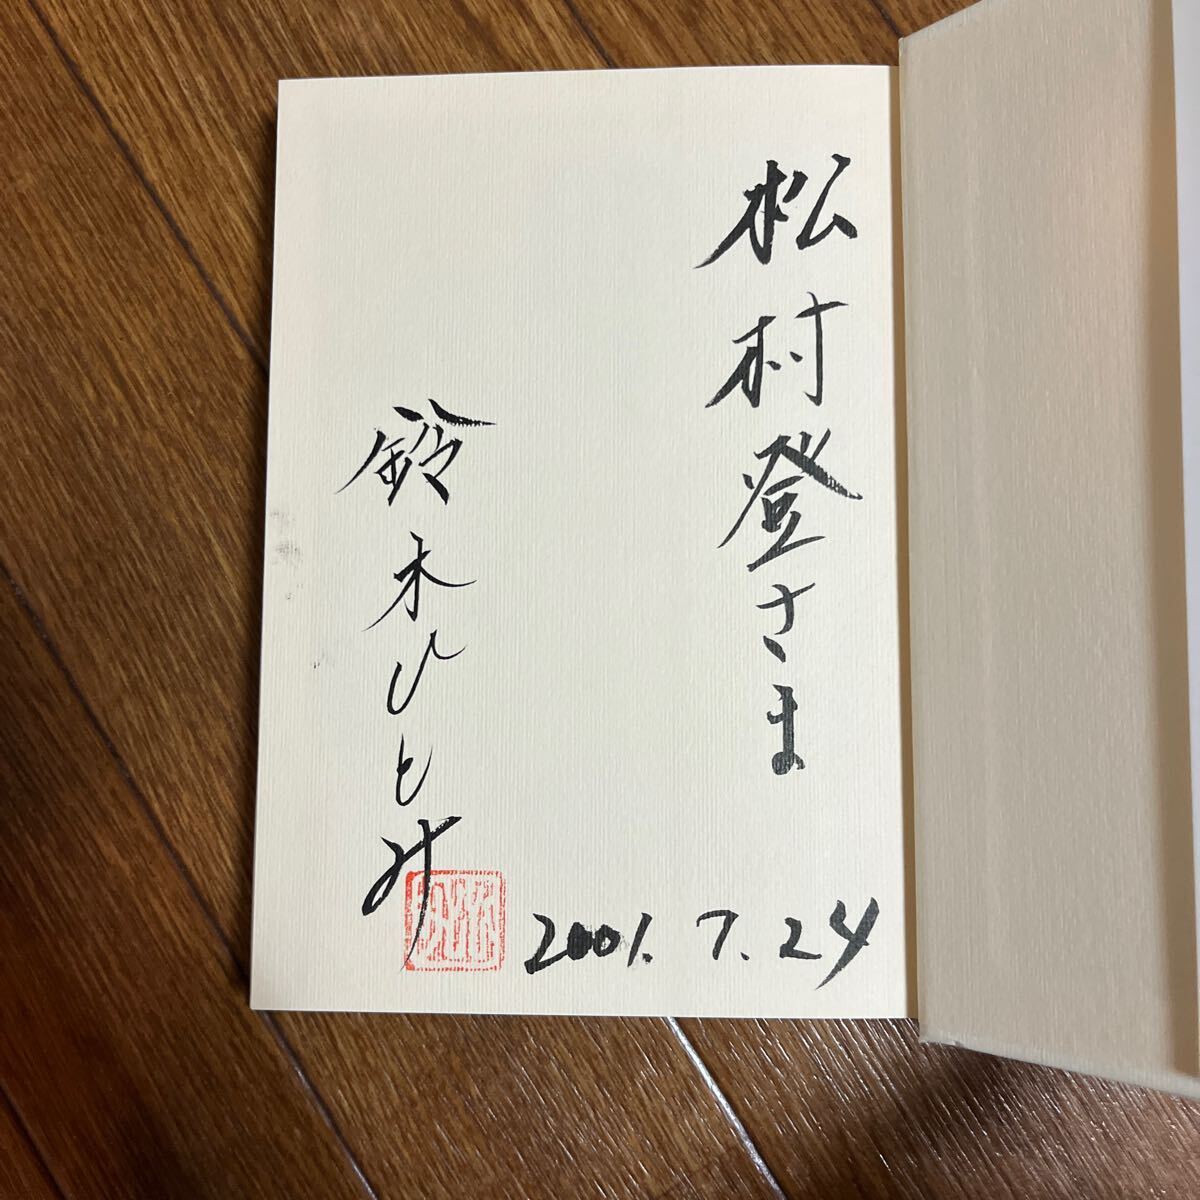 松村登さま
鈴木ひとみ
2001.7.24